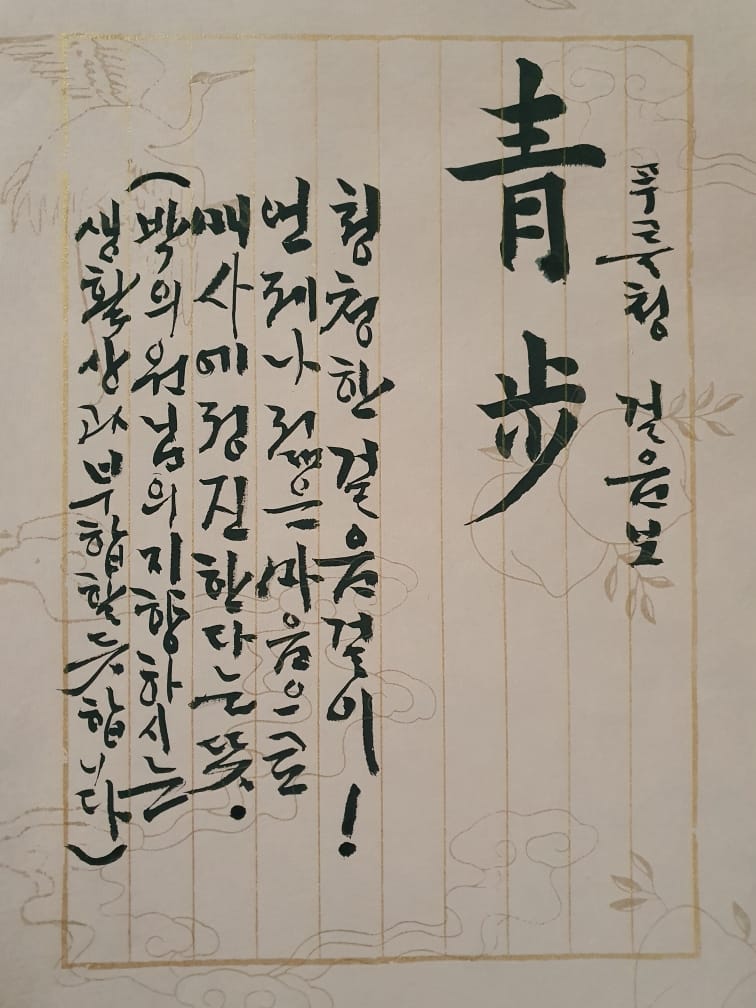 푸를청 걸음보
青步
청청한 걸음걸이!
언제나 젊은 마음으로
매사에 정진한다는 뜻.
(박의원님의 지향하시는
생활상과 부합할 듯합니다)